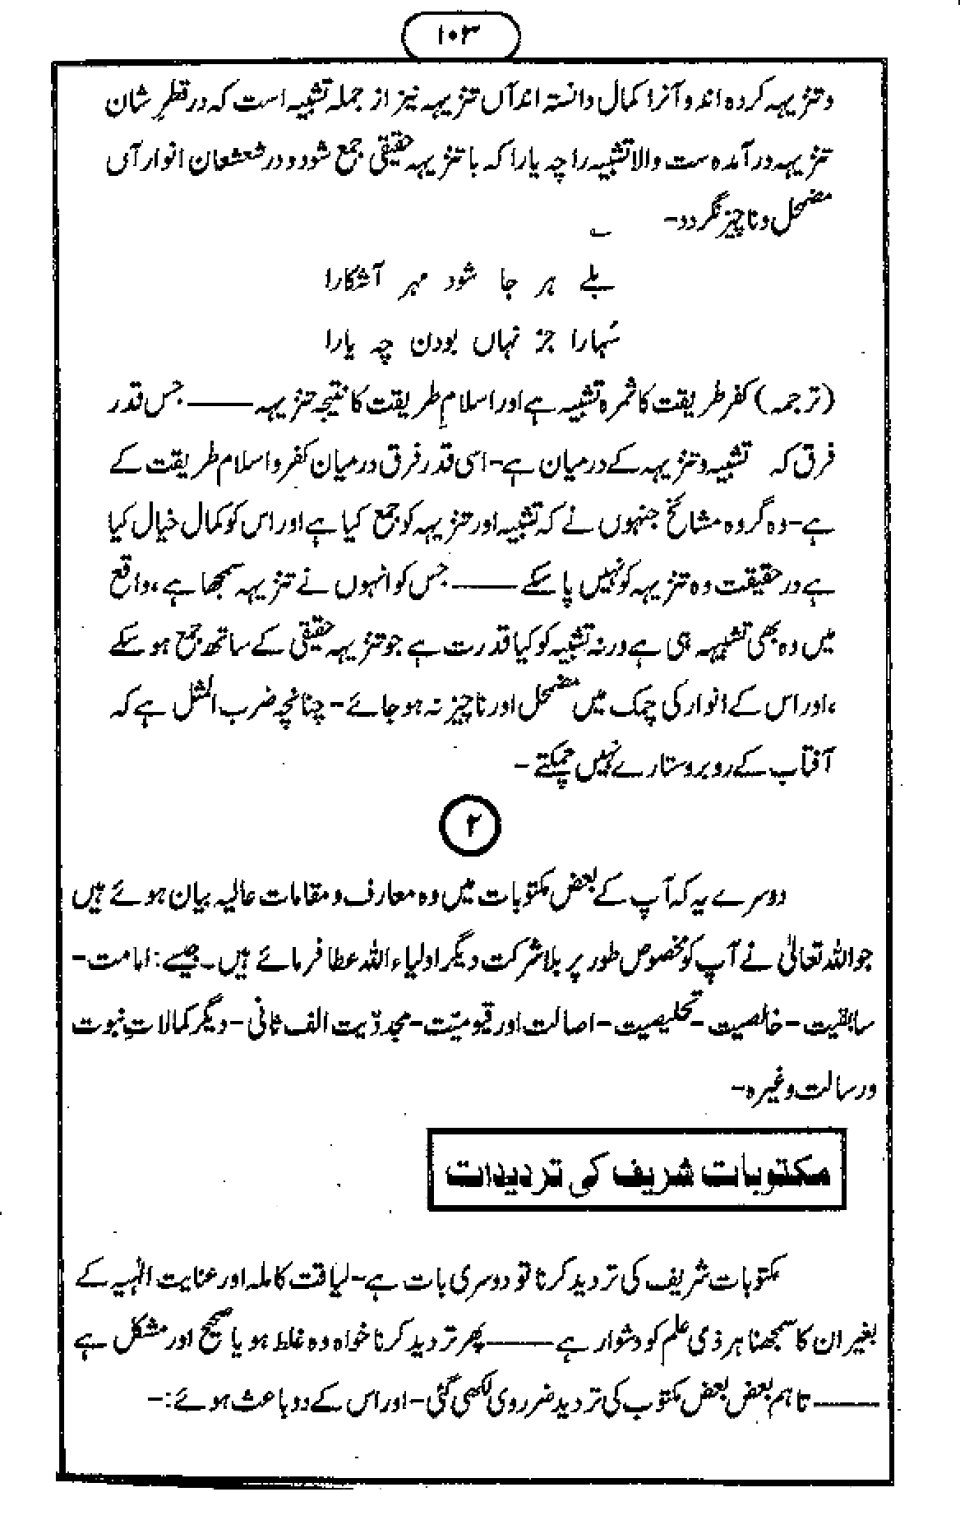 ۱۰۳
و تنزیہہ کردہ اند و آنرا کمال دانستہ اند آں تنزیہہ نیز از جملہ تشبیہ است کہ در قطر شان
تنزیہہ در آمدہ ست والا تشبیہ را چہ یارا کہ با تنزیہہ حقیقی جمع شود و در شعشعان انوار آں
مضمحل و نا چیز نگردد-
؎
بلے ہر جا شود مہر آشکارا
سُہارا جز نہاں بودن چہ یارا
(ترجمہ) کفر طریقت کا ثمرہ تشبیہ ہے اور اسلامِ طریقت کا نتیجہ تنزیہہ ——— جس قدر
فرق کہ تشبیہ و تنزیہہ کے درمیان ہے- اسی قدر فرق درمیان کفر و اسلام طریقت کے
ہے- وہ گروہ مشائخ جنہوں نے کہ تشبیہ اور تنزیہہ کو جمع کیا ہے اور اس کو کمال خیال کیا
ہے در حقیقت وہ تنزیہہ کو نہیں پا سکے ——— جس کو انہوں نے تنزیہہ سمجھا ہے، واقع
میں وہ بھی تشبیہہ ہی ہے ورنہ تشبیہ کو کیا قدرت ہے جو تنزیہہ حقیقی کے ساتھ جمع ہو سکے
،اور اس کے انوار کی چمک میں مضمحل اور ناچیز نہ ہو جائے- چنانچہ ضرب المثل ہے کہ
آفتاب کے روبرو ستارے نہیں چمکتے-
۲
دوسرے یہ کہ آپ کے بعض مکتوبات میں وہ معارف و مقامات عالیہ بیان ہوئے ہیں
جو اللہ تعالیٰ نے آپ کو مخصوص طور پر بلا شرکت دیگر اولیاء اللہ عطا فرمائے ہیں۔ جیسے: امامت-
سابقیت- خالصیت- تخلیصیت- اصالت اور قیومیّت- مجددّیت الف ثانی- دیگر کمالاتِ نبوت
و رسالت وغیرہ-
مکتوبات شریف کی تردیدات
مکتوبات شریف کی تردید کرنا تو دوسری بات ہے- لیاقت کاملہ اور عنایت الٰہیہ کے
بغیر ان کا سمجھنا ہر ذی علم کو دشوار ہے ——— پھر تردید کرنا خواہ وہ غلط ہو یا صحیح اور مشکل ہے
——— تاہم بعض بعض مکتوب کی تردید ضرروی لکھی گئی- اور اس کے دو باعث ہوئے:-